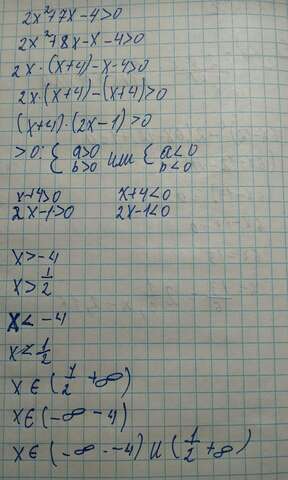 2x²+7x-4>0
2x²+8x-x-4>0
2x·(x+4)-x-4>0
2x·(x+4)-(x+4)>0
(x+4)·(2x-1)>0
>0: { a>0 b>0 или { a<0 b<0
x+4>0 x+4<0
2x-1>0 2x-1<0
x>-4
x>1/2
x<-4
x<1/2
x∈(1/2 +∞)
x∈(-∞ -4)
x∈(-∞ -4) U (1/2 +∞)